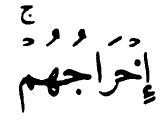 إِخْرَاجُهُمْ ۚ